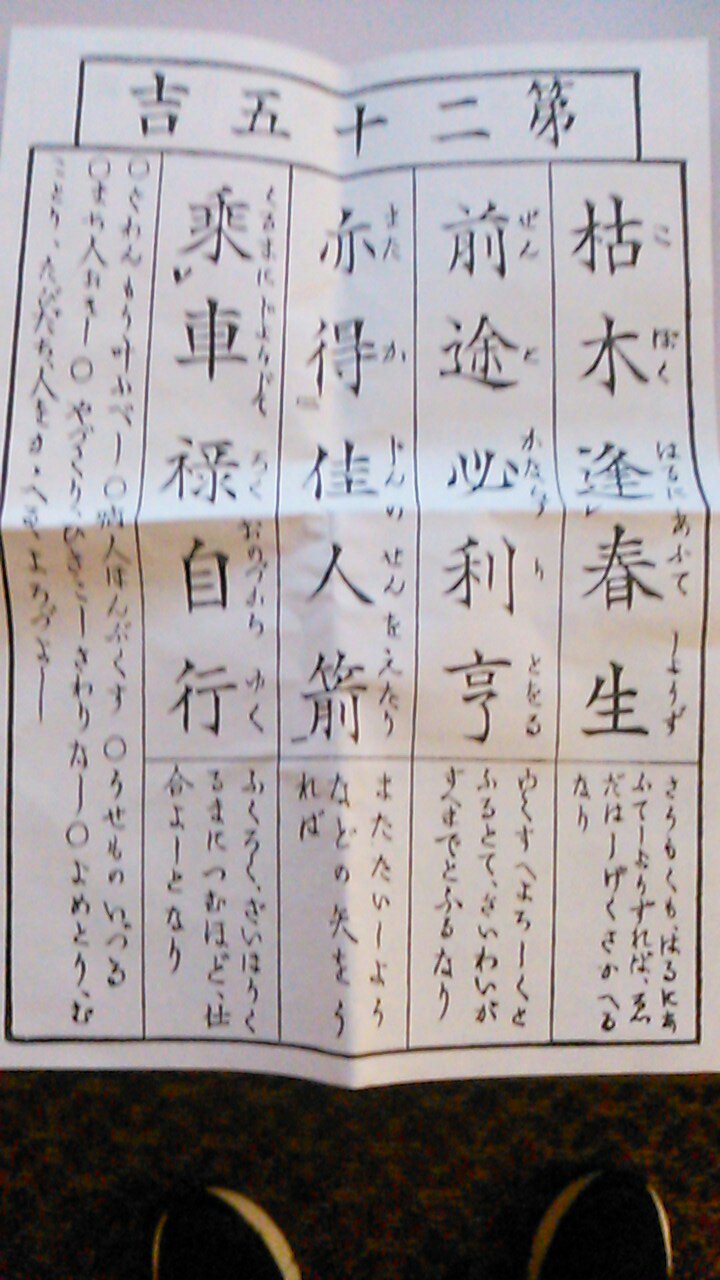 第二十五吉
枯木逢春生
こぼくはるにあふてしようず
さうもくも、はるにあ
ふてしようずれば、ゑ
だはしげくさかへる
なり
前途必利亨
ぜんとかならずりとをる
ゆくすへよろしくと
ふるとて、さいわいが
すへまでとふるなり
亦得佳人箭
またかじんのせんをえたり
またたいしよう
などの矢をう
れば
乗車禄自行
くるまにじようじてろくおのづからゆく
ふくろく、ざいほうく
るまにつむほど、仕
合よしとなり
○くわんもう叶ふべし○病人ほんぶくす○うせものいづる
○まち人おそし○やづくり、ひきこしさわりなし○よめとり、む
ことり、たびだち、人をかゝへる、よろづよし